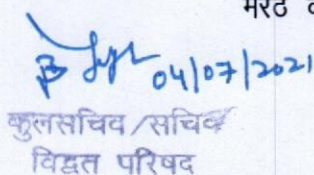 मेरठ
04/07/2021
कुलसचिव/सचिव
विद्वत परिषद